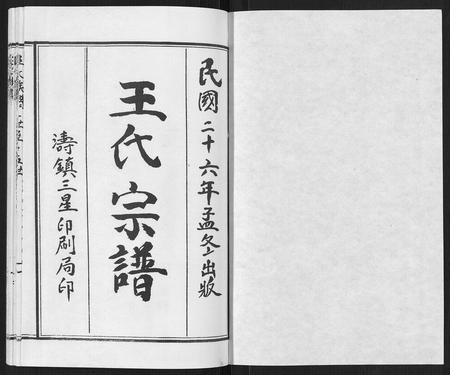 民國二十六年孟冬出版
王氏宗譜
濤鎮三星印刷局印